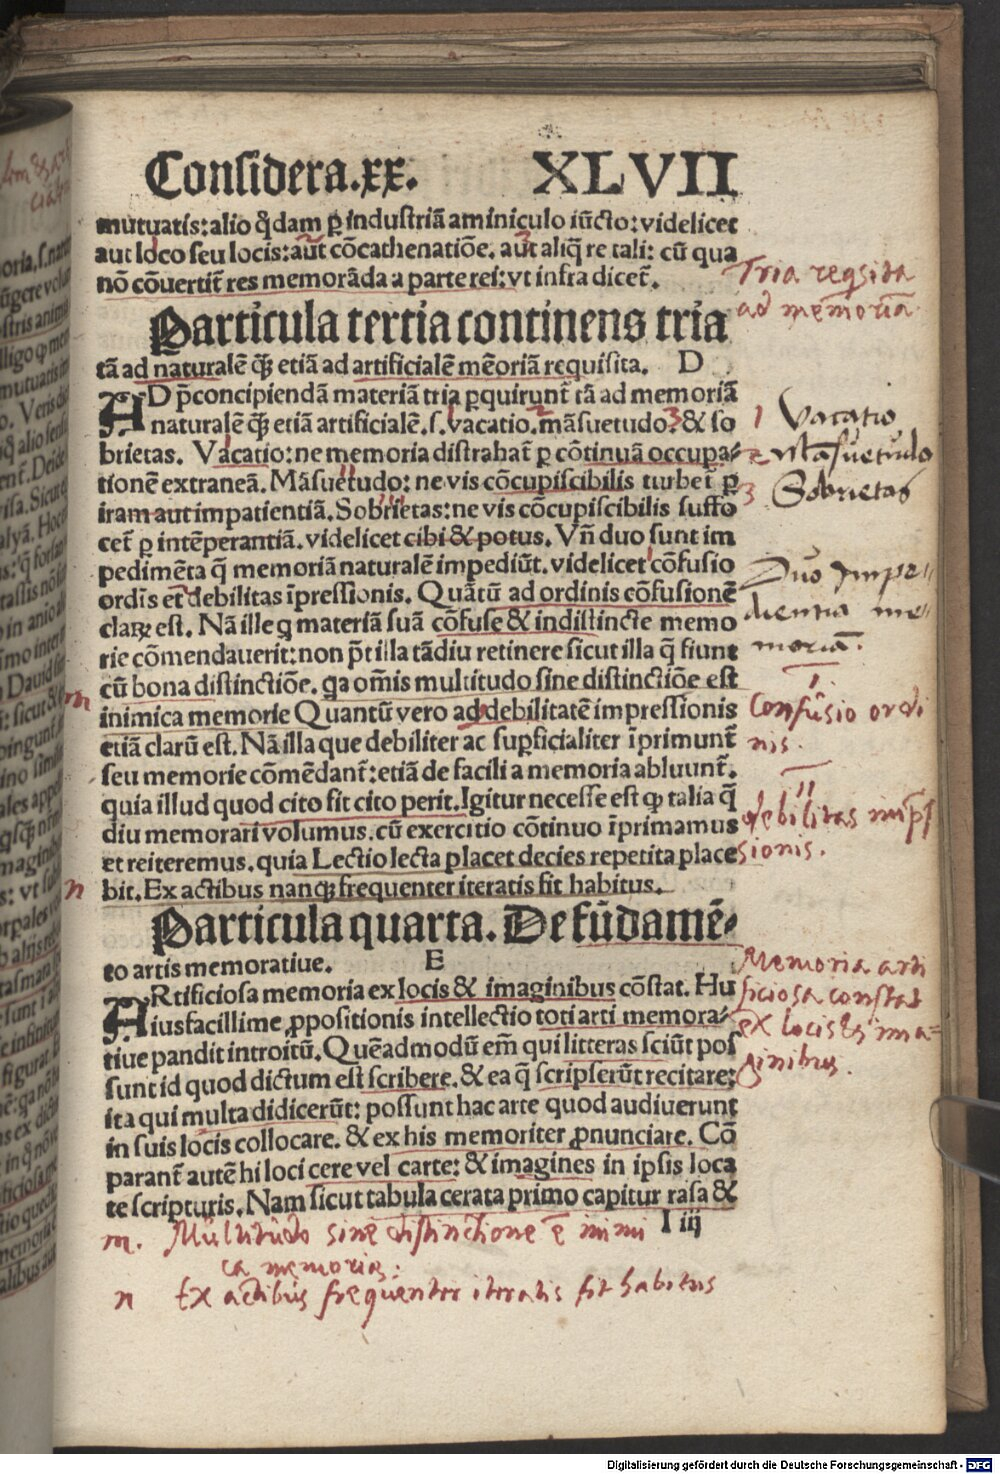 Considera.xx. XLVII
mutuatis: alio q̃dam ꝑ industriã aminiculo iũcto: videlicet
aut loco seu locis: aut cõcathenatiõe. aut aliq̃ re tali: cũ qua
nõ cõuertit̃ res memorãda a parte rei: vt infra dicet̃.
Particula tertia continens tria
tã ad naturalẽ q̃ꝫ etiã ad artificialẽ mẽoriã requisita. D
AD p̃concipiendã materiã tria ꝑquirunt̃ tã ad memoriã
naturalẽ q̃ꝫ etiã artificialẽ. s. vacatio. mãsuetudo. & so
brietas. Vacatio: ne memoria distrahat̃ ꝑ cõtinuã occupa-
tionẽ extraneã. Mãsuetudo: ne vis cõcupiscibilis turbet̃ ꝑ
iram aut impatientiã. Sobrietas: ne vis cõcupiscibilis suffo
cet̃ ꝑ intẽperantiã. videlicet cibi & potus. Vñ duo sunt im
pedimẽta q̃ memoriã naturalẽ impediũt. videlicet cõfusio
ordĩs et debilitas ĩpressionis. Quãtũ ad ordinis cõfusionẽ
claꝝ est. Nã ille q materiã suã cõfuse & indistincte memo
rie cõmendauerit: non p̃t illa tãdiu retinere sicut illa q̃ fiunt
cũ bona distinctiõe. qa om̃is multitudo sine distinctiõe est
inimica memorie Quantũ vero ad debilitatẽ impressionis
etiã clarũ est. Nã illa que debiliter ac suꝑficialiter ĩprimunt̃
seu memorie cõmẽdant̃: etiã de facili a memoria abluunt̃.
quia illud quod cito fit cito perit. Igitur necesse est ꝙ talia q̃
diu memorari volumus. cũ exercitio cõtinuo ĩprimamus
et reiteremus. quia Lectio lecta placet decies repetita place
bit. Ex actibus nanqꝫ frequenter iteratis fit habitus.
Particula quarta. De fũdamẽ-
to artis memoratiue. E
ARtificiosa memoria ex locis & imaginibus cõstat. Hu
iusfacillime ꝓpositionis intellectio toti arti memora-
tiue pandit introitũ. Quẽadmodũ em̃ qui litteras sciũt pos
sunt id quod dictum est scribere. & ea q̃ scripserũt recitare:
ita qui multa didicerũt: possunt hac arte quod audiuerunt
in suis locis collocare. & ex his memoriter ꝓnunciare. Cõ
parant̃ autẽ hi loci cere vel carte: & imagines in ipsis loca
te scripturis. Nam sicut tabula cerata primo capitur rasa &
I iij
Tria reqsita
ad memoria
1 Vacatio
2 Mãsuetudo
3 Sobrietas
Duo Impe-
dientia me-
moriã.
I.
Confusio ordi
nis.
II
debilitas imp̃s
sionis.
Memoria arti
ficiosa constat
ex locis & ima=
ginibus.
m
n
m. Multitudo sine distinctione ẽ inimi
ca memoriae.
n Ex actibus frequenter iteratis fit habitus
Digitalisierung gefördert durch die Deutsche Forschungsgemeinschaft - DFG